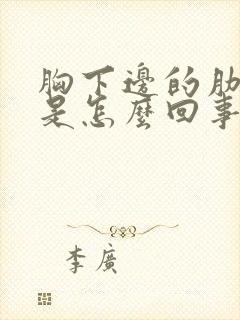 胸下邊的肋
是怎麼回事
李廣